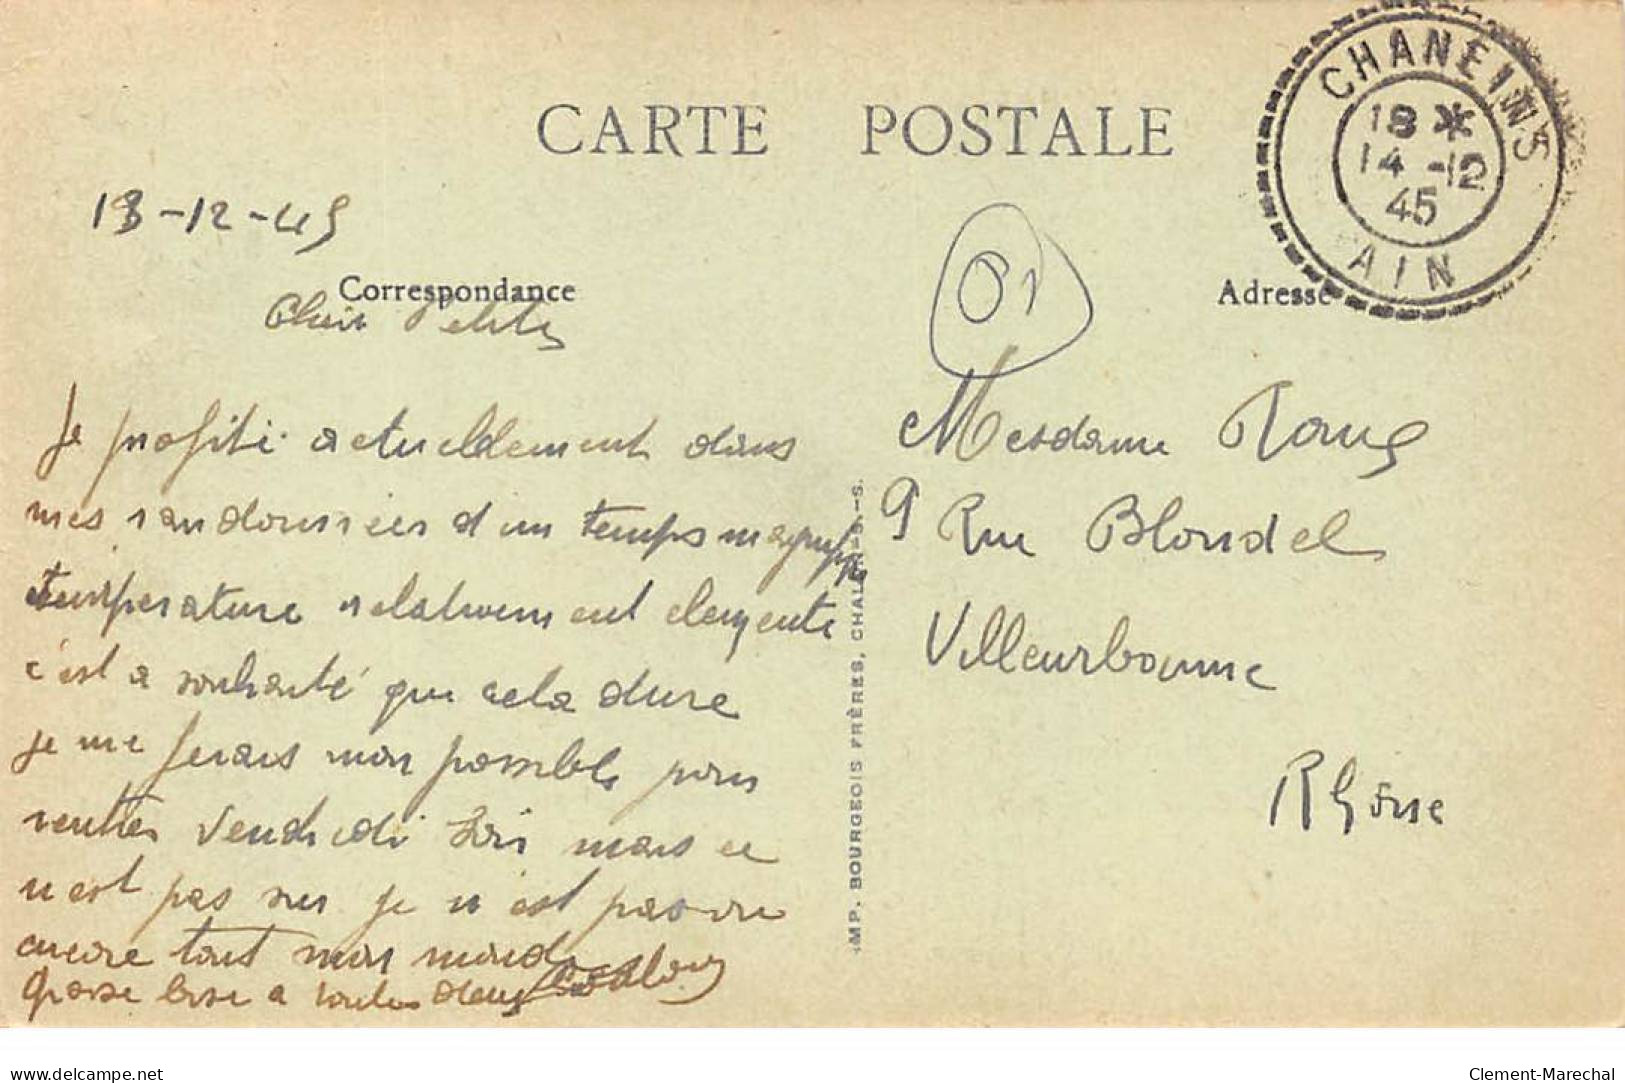 CARTE POSTALE
CHANEINS
18 *
14 -12
45
AIN
13-12-45
Correspondance
Adresse
01
Je profite actuellement dans
mes randonnées d'un temps magnifi
température relativement clemente
c'est a souhaité que cela dure
je me ferais mon possible pour
rentrer Vendredi Soir mais ce
n'est pas sur je n'est pas vu
encore tout mon monde
Grosse bise a toutes deux
Mesdame
9 Rue Blondel
Villeurbanne
Rhône
IMP. BOURGEOIS FRÈRES, CHALON-S.-S.
delcampe.net
Clement-Marechal